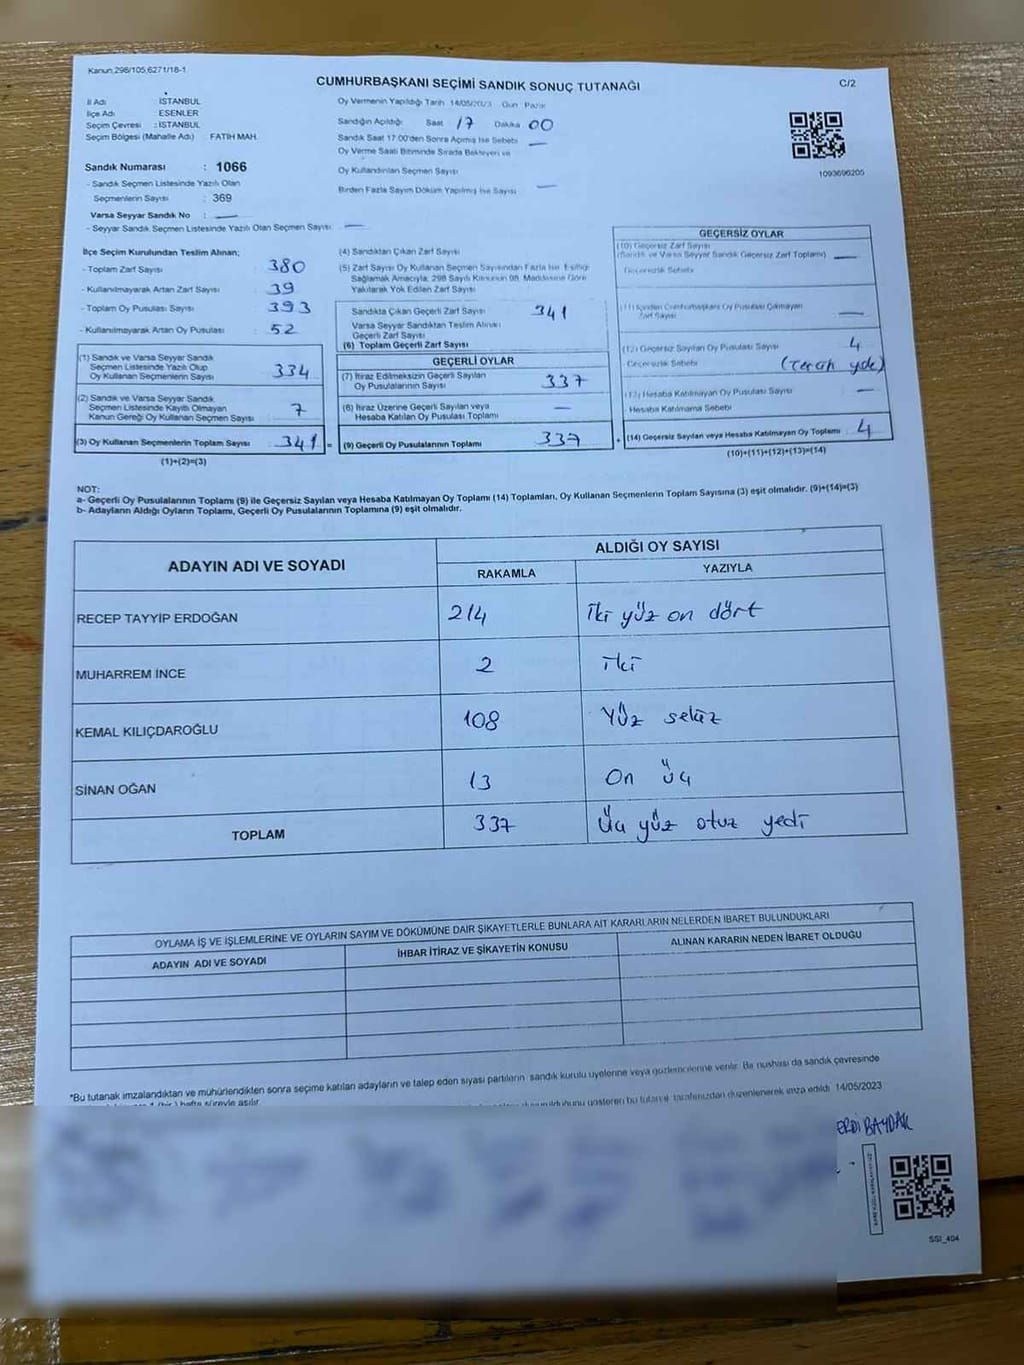 Kanun;298/105;6271/18-1
CUMHURBAŞKANI SEÇİMİ SANDIK SONUÇ TUTANAĞI
C/2
İl Adı : İSTANBUL
İlçe Adı : ESENLER
Seçim Çevresi : İSTANBUL
Seçim Bölgesi (Mahalle Adı) FATİH MAH.
Sandık Numarası : 1066
- Sandık Seçmen Listesinde Yazılı Olan
Seçmenlerin Sayısı : 369
Varsa Seyyar Sandık No : —
- Seyyar Sandık Seçmen Listesinde Yazılı Olan Seçmen Sayısı —
Oy Vermenin Yapıldığı Tarih 14/05/2023 Gün Pazar
Sandığın Açıldığı Saat 17 Dakika 00
Sandık Saat 17.00'den Sonra Açılmış İse Sebebi —
Oy Verme Saati Bitiminde Sırada Bekleyen ve
Oy Kullandırılan Seçmen Sayısı
Birden Fazla Sayım Döküm Yapılmış İse Sayısı —
1093696205
İlçe Seçim Kurulundan Teslim Alınan;
- Toplam Zarf Sayısı : 380
- Kullanılmayarak Artan Zarf Sayısı : 39
- Toplam Oy Pusulası Sayısı : 393
- Kullanılmayarak Artan Oy Pusulası : 52
(1) Sandık ve Varsa Seyyar Sandık
Seçmen Listesinde Yazılı Olup
Oy Kullanan Seçmenlerin Sayısı : 334
(2) Sandık ve Varsa Seyyar Sandık
Seçmen Listesinde Kayıtlı Olmayan
Kanun Gereği Oy Kullanan Seçmen Sayısı : 7
(3) Oy Kullanan Seçmenlerin Toplam Sayısı : 341
(1)+(2)=(3)
(4) Sandıktan Çıkan Zarf Sayısı
(5) Zarf Sayısı Oy Kullanan Seçmen Sayısından Fazla İse, Eşitliği
Sağlamak Amacıyla; 298 Sayılı Kanunun 98. Maddesine Göre
Yakılarak Yok Edilen Zarf Sayısı
Sandıkta Çıkan Geçerli Zarf Sayısı 341
Varsa Seyyar Sandıktan Teslim Alınan
Geçerli Zarf Sayısı
(6) Toplam Geçerli Zarf Sayısı
GEÇERLİ OYLAR
(7) İtiraz Edilmeksizin Geçerli Sayılan
Oy Pusulalarının Sayısı 337
(8) İtiraz Üzerine Geçerli Sayılan veya
Hesaba Katılan Oy Pusulası Toplamı —
= (9) Geçerli Oy Pusulalarının Toplamı 337
GEÇERSİZ OYLAR
(10) Geçersiz Zarf Sayısı
(Sandık ve Varsa Seyyar Sandık Geçersiz Zarf Toplamı) —
Geçersizlik Sebebi
(11) İçinden Cumhurbaşkanı Oy Pusulası Çıkmayan
Zarf Sayısı —
(12) Geçersiz Sayılan Oy Pusulası Sayısı 4
Geçersizlik Sebebi
(13) Hesaba Katılmayan Oy Pusulası Sayısı —
Hesaba Katılmama Sebebi
+ (14) Geçersiz Sayılan veya Hesaba Katılmayan Oy Toplamı 4
(10)+(11)+(12)+(13)=(14)
NOT:
a- Geçerli Oy Pusulalarının Toplamı (9) ile Geçersiz Sayılan veya Hesaba Katılmayan Oy Toplamı (14) Toplamları, Oy Kullanan Seçmenlerin Toplam Sayısına (3) eşit olmalıdır. (9)+(14)=(3)
b- Adayların Aldığı Oyların Toplamı, Geçerli Oy Pusulalarının Toplamına (9) eşit olmalıdır.
ADAYIN ADI VE SOYADI
ALDIĞI OY SAYISI
RAKAMLA YAZIYLA
RECEP TAYYİP ERDOĞAN 214 İki yüz on dört
MUHARREM İNCE 2 iki
KEMAL KILIÇDAROĞLU 108 Yüz sekiz
SİNAN OĞAN 13 On üç
TOPLAM 337 Üç yüz otuz yedi
OYLAMA İŞ VE İŞLEMLERİNE VE OYLARIN SAYIM VE DÖKÜMÜNE DAİR ŞİKAYETLERLE BUNLARA AİT KARARLARIN NELERDEN İBARET BULUNDUKLARI
ADAYIN ADI VE SOYADI İHBAR İTİRAZ VE ŞİKAYETİN KONUSU ALINAN KARARIN NEDEN İBARET OLDUĞU
*Bu tutanak imzalandıktan ve mühürlendikten sonra seçime katılan adayların ve talep eden siyasi partilerin sandık kurulu üyelerine veya gözlemcilerine verilir. Bir nüshası da sandık çevresinde
1 (bir) hafta süreyle asılır.
bu tutanak tarafımızdan düzenlenerek imza edildi. 14/05/2023
ERDİ BAYDAK
SSI_404